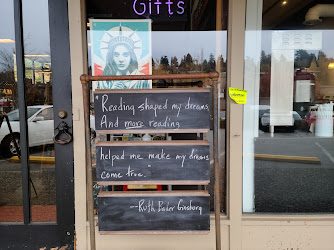 Gifts
Reading shaped my dreams,
And more reading
helped me make my dreams
come true."
--Ruth Bader Ginsburg